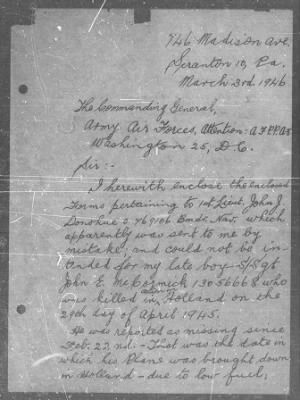 946 Madison Ave.
Scranton 10, Pa.
March 3rd 1946
The Commanding General,
Army Air Forces, Attention: A.F.P.P.A.
Washington 25, D.C.
Sir:-
I herewith enclose the enclosed
Forms pertaining to 1st Lieut. John J.
Donohue Bmdr. Nav. which
apparently was sent to me by
mistake; and could not be in-
tended for my late boy - S/Sgt
John E. McCormick 13056668 who
was killed in Holland on the
29th day of April 1945.
He was reported as missing since
Feb. 22 nd. - That was the date in
which his Plane was brought down
in Holland - due to low fuel,